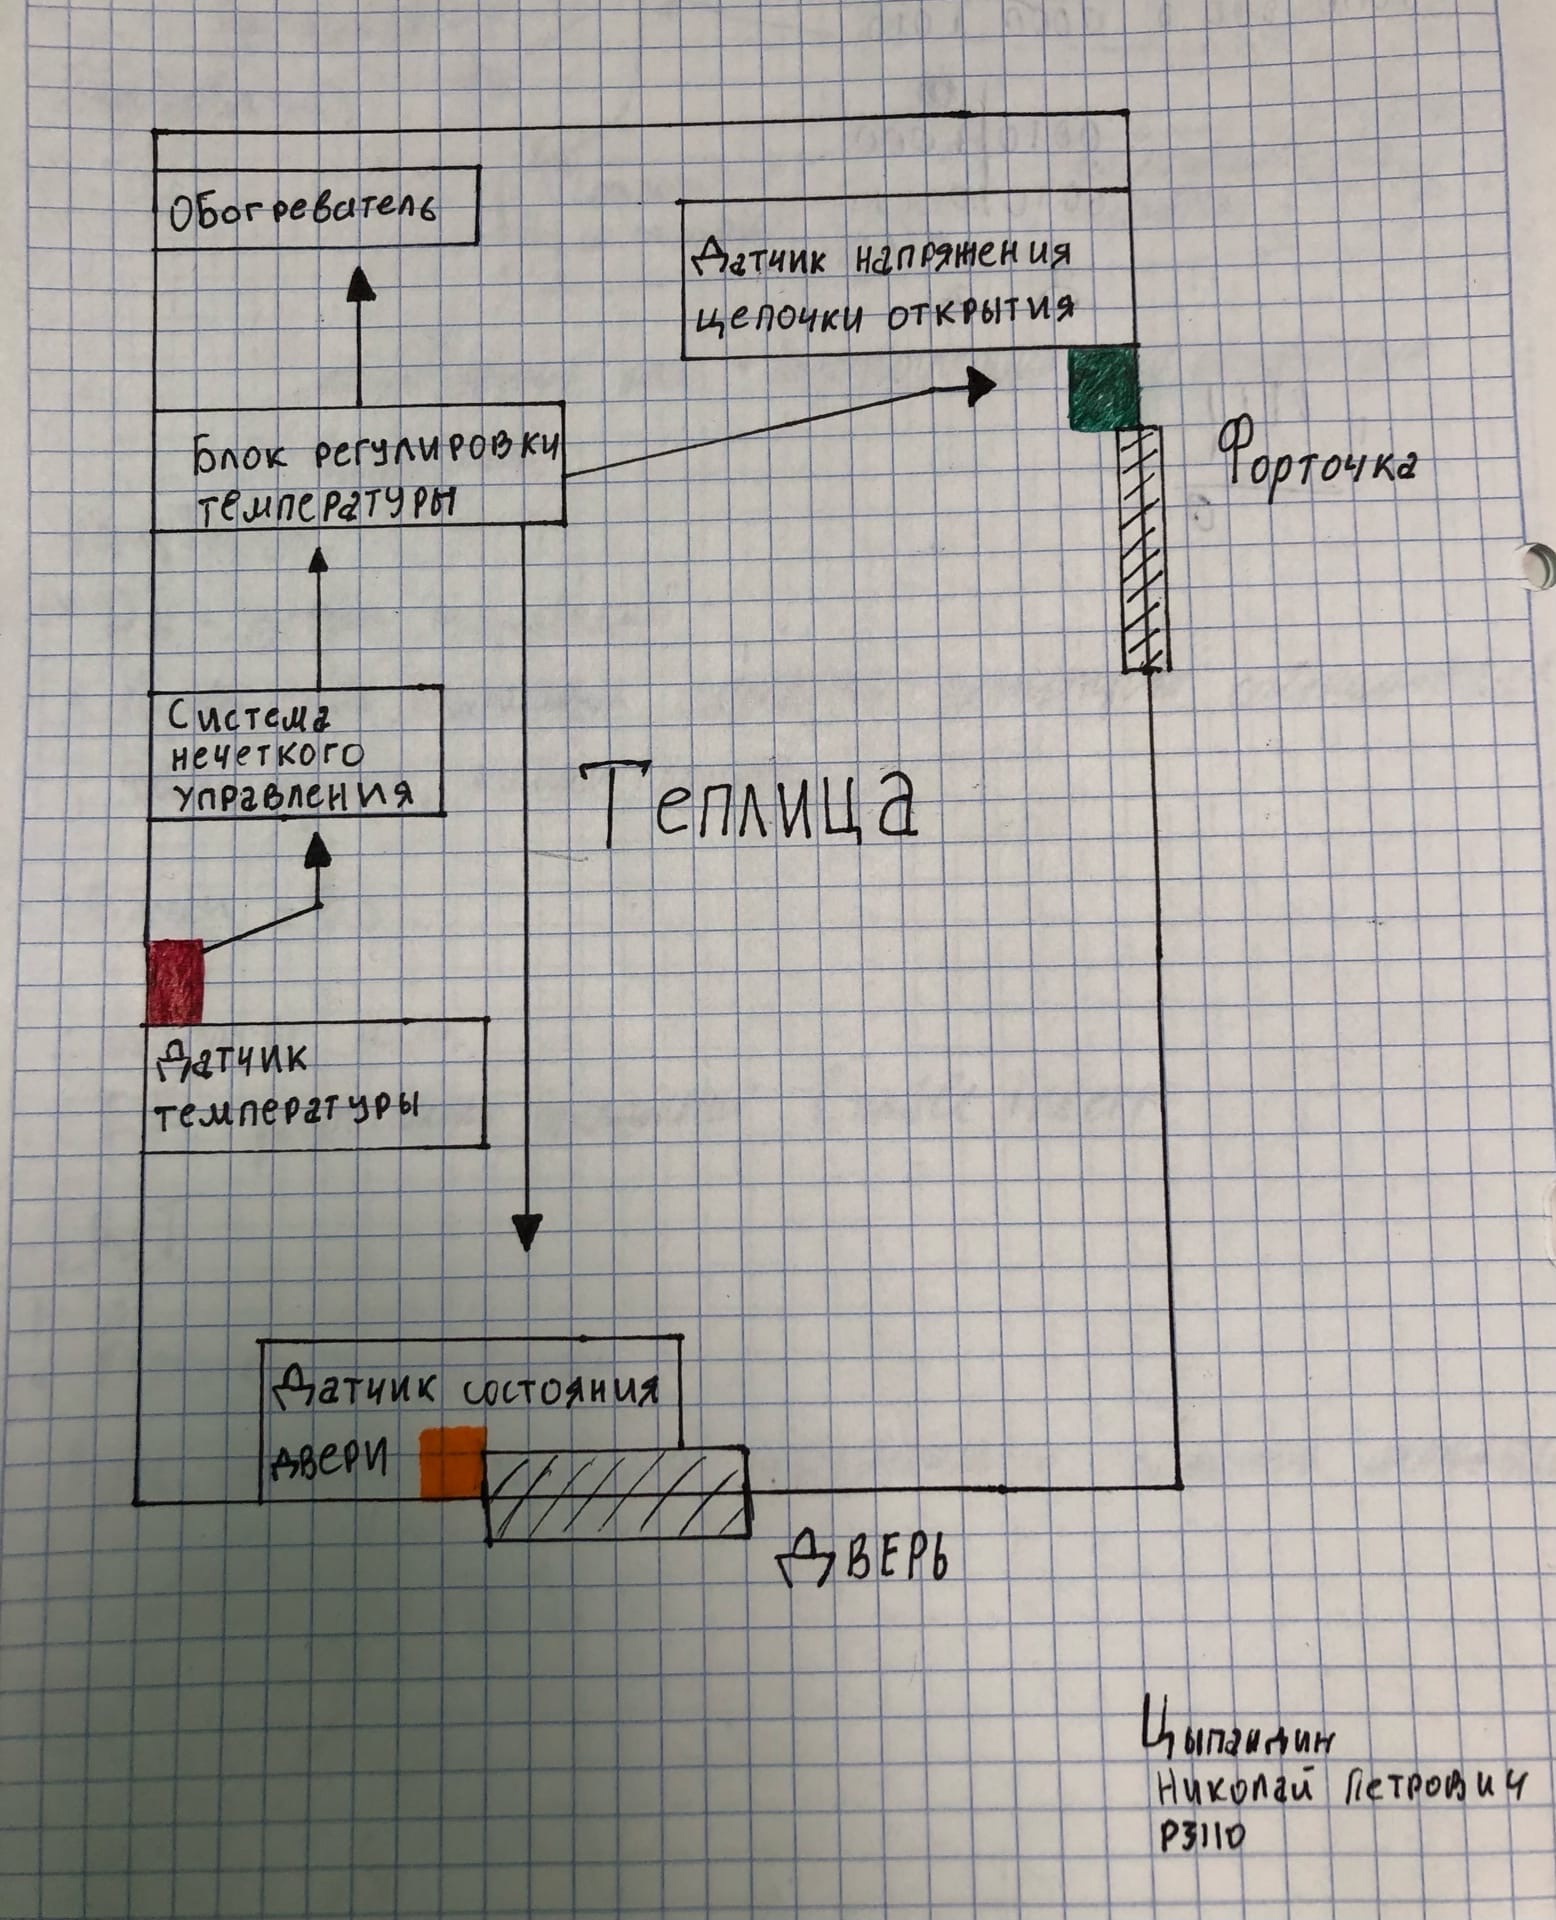 Обогреватель
Датчик напряжения
цепочки открытия
Блок регулировки
температуры
Форточка
Система
нечеткого
управления
Теплица
Датчик
температуры
Датчик состояния
двери
Дверь
Цыпандин
Николай Петрович
P3110